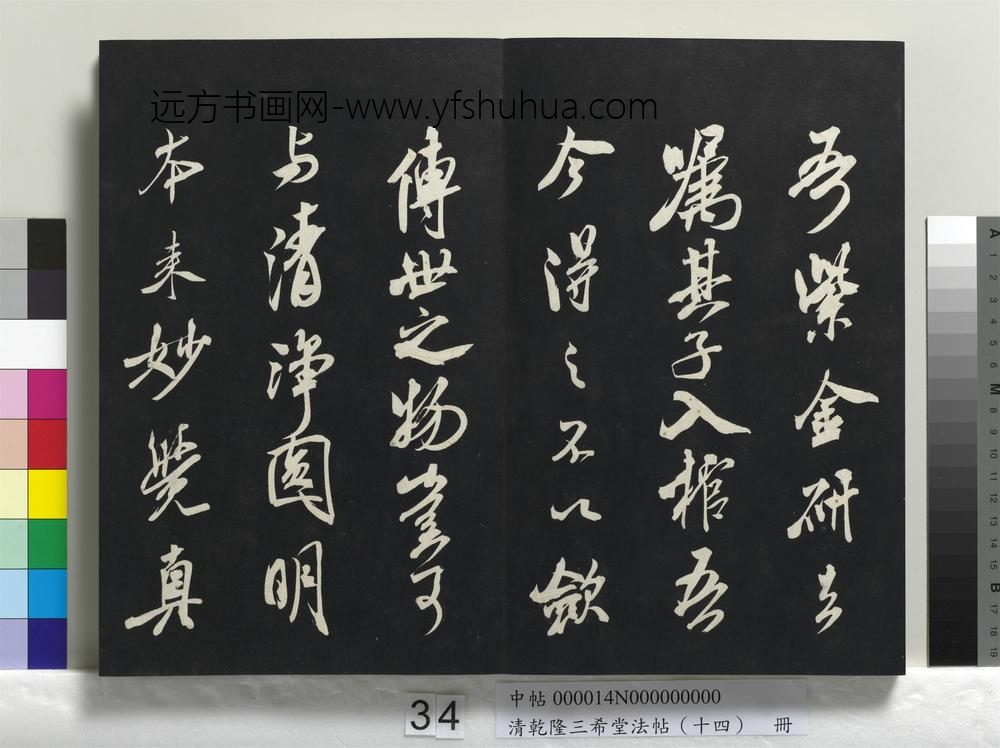 远方书画网-www.yfshuhua.com
吾紫金研去
嘱其子入棺吾
今得之不以歛
傳世之物豈可
与清淨圓明
本来妙覺真
34
中帖 000014N000000000
清乾隆三希堂法帖（十四） 冊
A 1 2 3 4 5 6 M 8 9 10 11 12 13 14 15 B 17 18 19